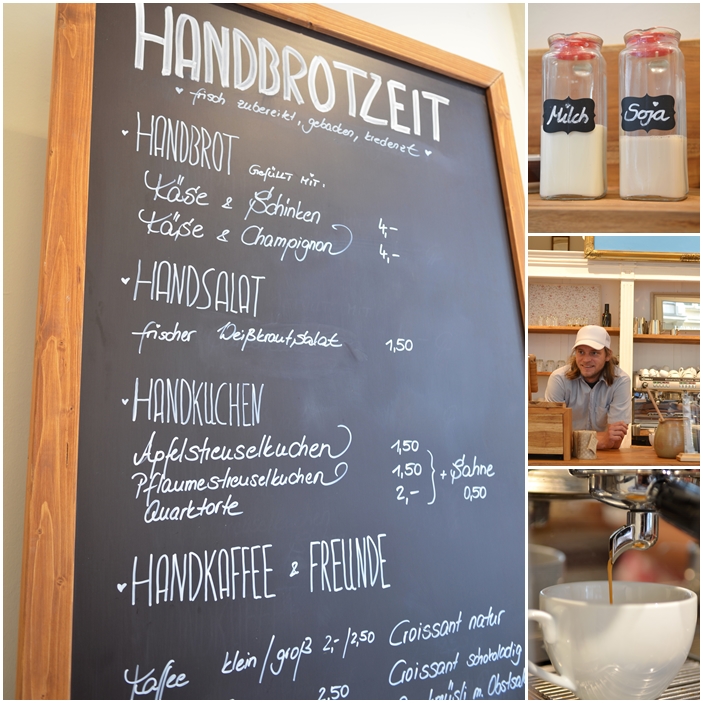 HANDBROTZEIT
♥ frisch zubereitet, gebacken, kredenzt ♥
♥ HANDBROT GEFÜLLT MIT:
Käse & Schinken 4,–
Käse & Champignon 4,–
♥ HANDSALAT
frischer Weißkrautsalat 1,50
♥ HANDKUCHEN
Apfelstreuselkuchen 1,50
Pflaumestreuselkuchen 1,50 + Sahne
Quarktorte 2,– 0,50
♥ HANDKAFFEE & FREUNDE
Kaffee klein/groß 2,–/2,50 Croissant natur
Croissant schokoladig
2,50 m. Obstsal
Milch
Soja